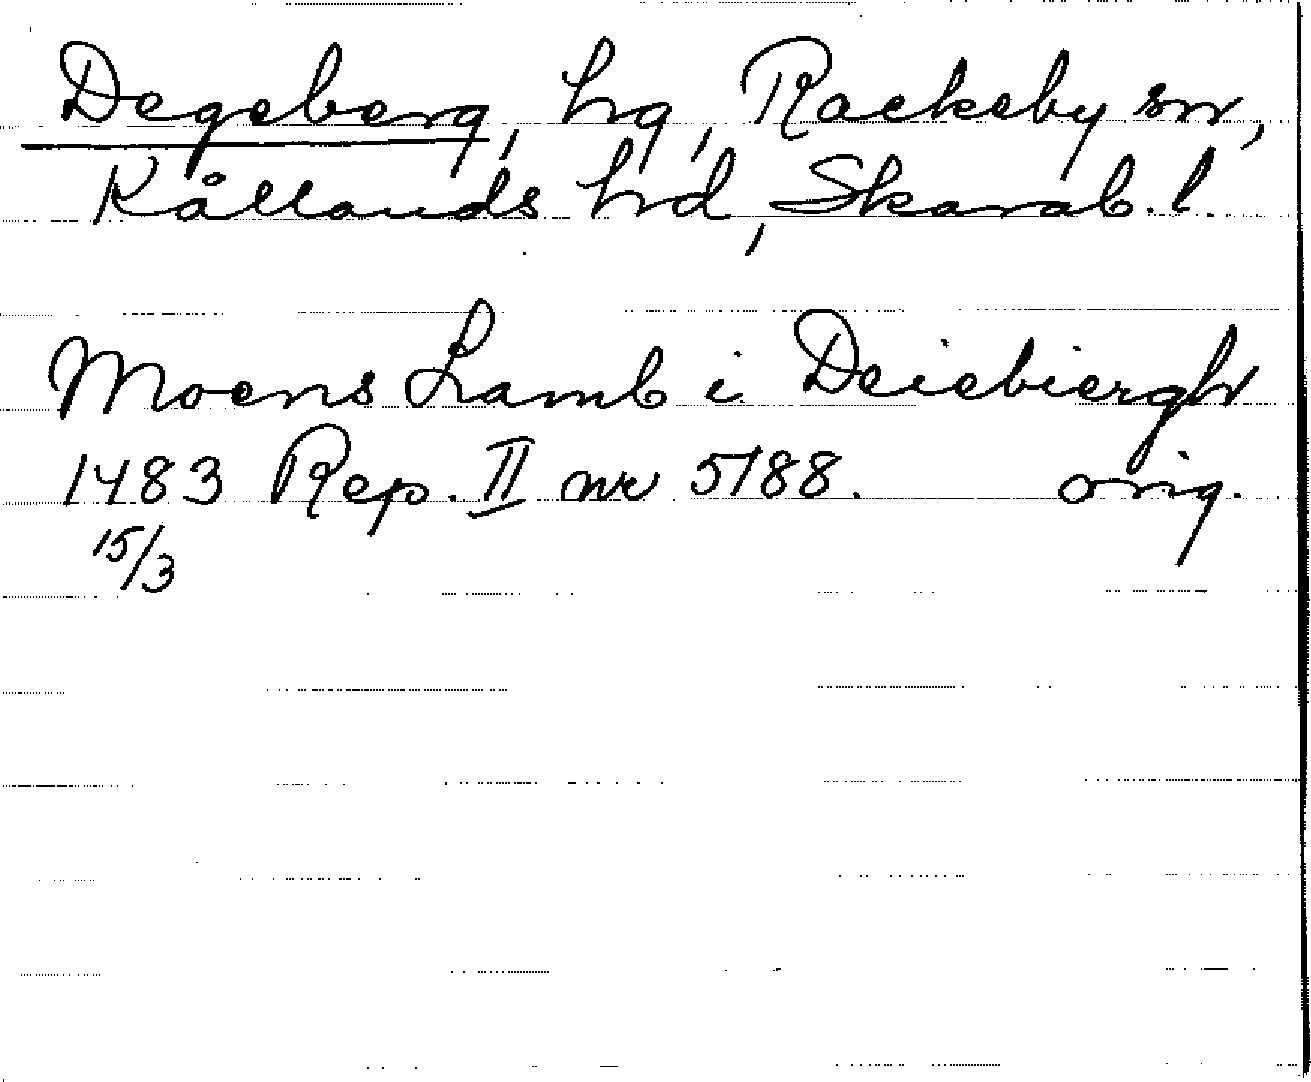 Degeberg, hg, Rackeby sn,
Kållands hd, Skarab. l.
Moens Lamb i Deiebiergh
1483 Rep. II nr 5188. orig.
15/3